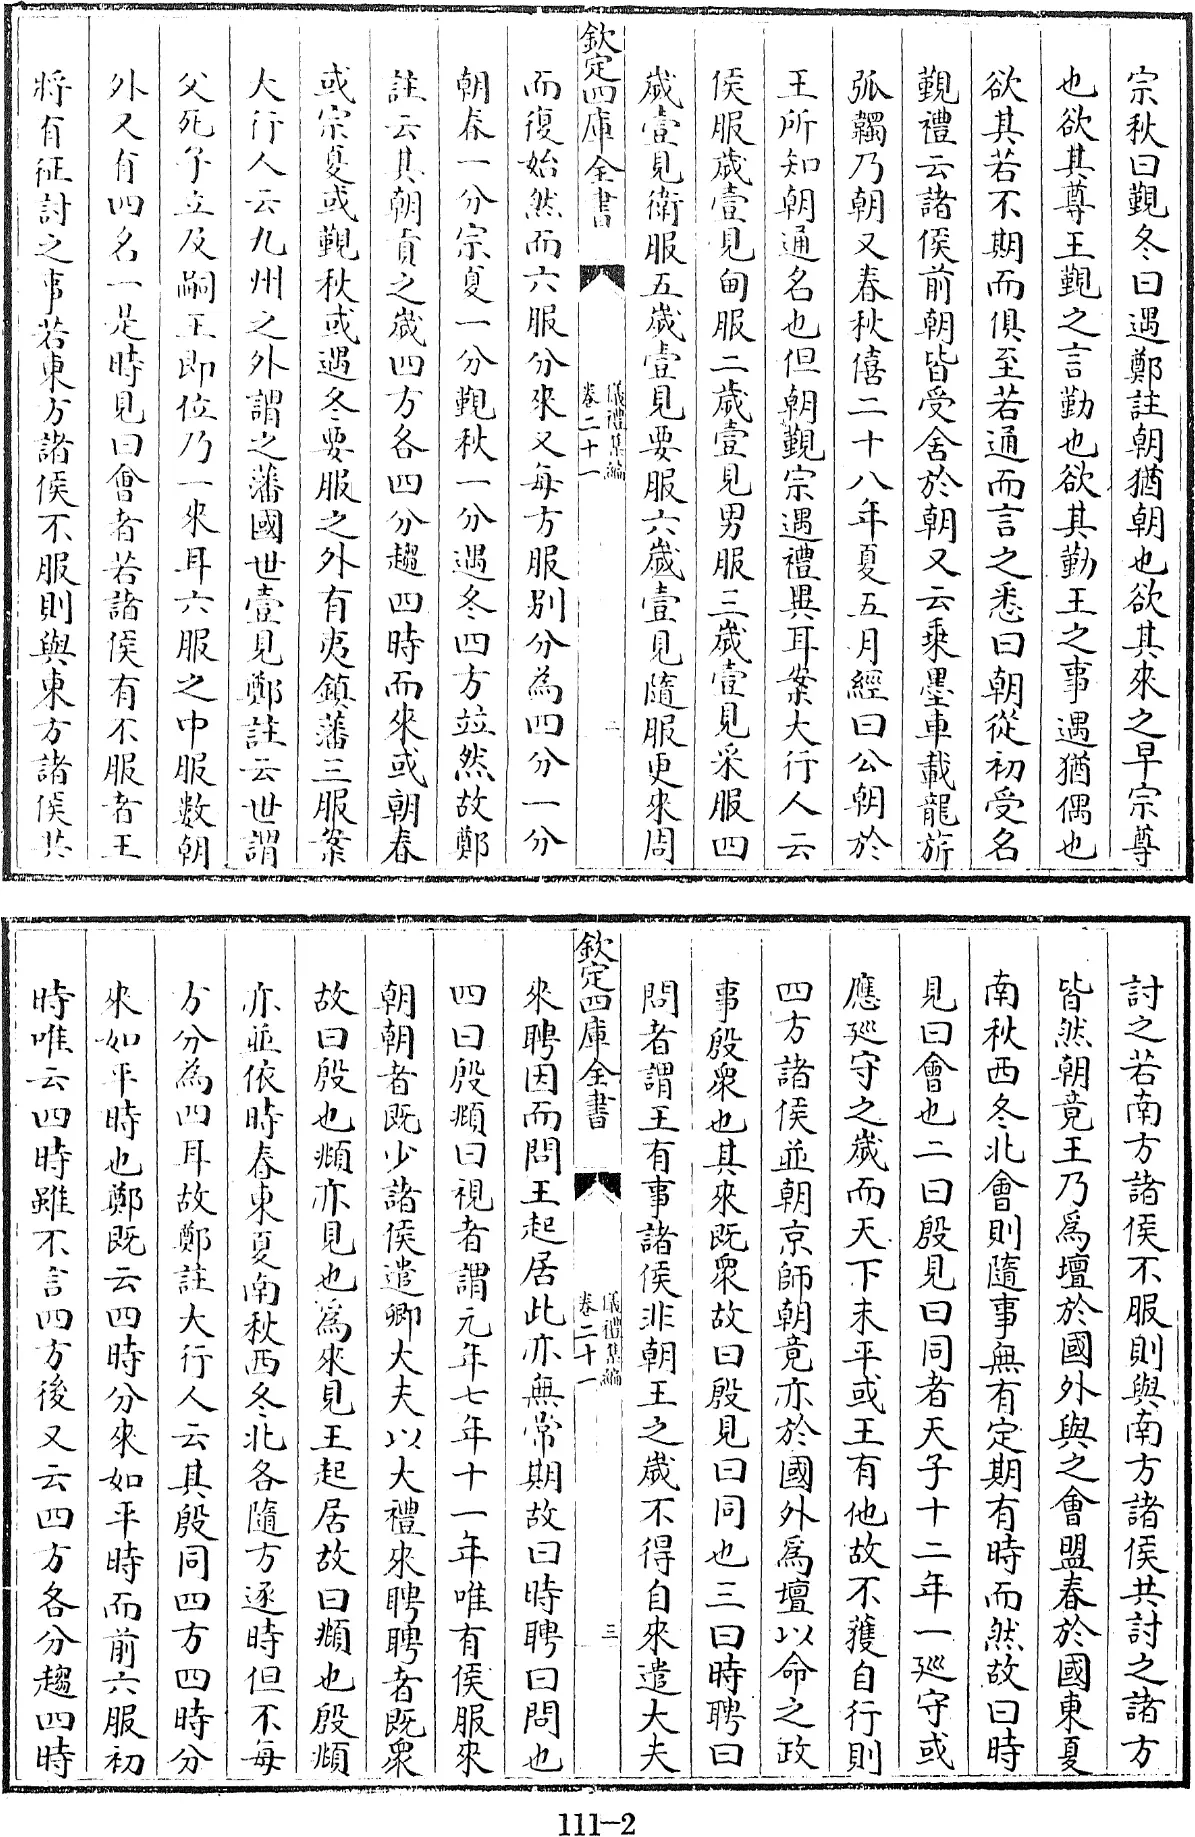 宗秋曰覲冬曰遇鄭註朝猶朝也欲其來之早宗尊
也欲其尊王覲之言勤也欲其勤王之事遇猶偶也
欲其若不期而俱至若通而言之悉曰朝從初受名
覲禮云諸侯前朝皆受舍於朝又云乘墨車載龍旂
弧韣乃朝又春秋僖二十八年夏五月經曰公朝於
王所知朝通名也但朝覲宗遇禮異耳案大行人云
侯服歲壹見甸服二歲壹見男服三歲壹見采服四
歲壹見衛服五歲壹見要服六歲壹見隨服更來周
欽定四庫全書
儀禮集編
卷二十一
二
而復始然而六服分來又每方服別分為四分一分
朝春一分宗夏一分覲秋一分遇冬四方並然故鄭
註云其朝貢之歲四方各四分趨四時而來或朝春
或宗夏或覲秋或遇冬要服之外有夷鎮藩三服案
大行人云九州之外謂之藩國世壹見鄭註云世謂
父死子立及嗣王即位乃一來耳六服之中服數朝
外又有四名一是時見曰會者若諸侯有不服者王
將有征討之事若東方諸侯不服則與東方諸侯共
討之若南方諸侯不服則與南方諸侯共討之諸方
皆然朝竟王乃為壇於國外與之會盟春於國東夏
南秋西冬北會則隨事無有定期有時而然故曰時
見曰會也二曰殷見曰同者天子十二年一廵守或
應廵守之歲而天下未平或王有他故不獲自行則
四方諸侯並朝京師朝竟亦於國外為壇以命之政
事殷衆也其來既衆故曰殷見曰同也三曰時聘曰
問者謂王有事諸侯非朝王之歲不得自來遣大夫
欽定四庫全書
儀禮集編
卷二十一
三
來聘因而問王起居此亦無常期故曰時聘曰問也
四曰殷頫曰視者謂元年七年十一年唯有侯服來
朝朝者既少諸侯遣卿大夫以大禮來聘聘者既衆
故曰殷也頫亦見也為來見王起居故曰頫也殷頫
亦並依時春東夏南秋西冬北各隨方逐時但不每
方分為四耳故鄭註大行人云其殷同四方四時分
來如平時也鄭既云四時分來如平時而前六服初
時唯云四時雖不言四方後又云四方各分趨四時
111-2